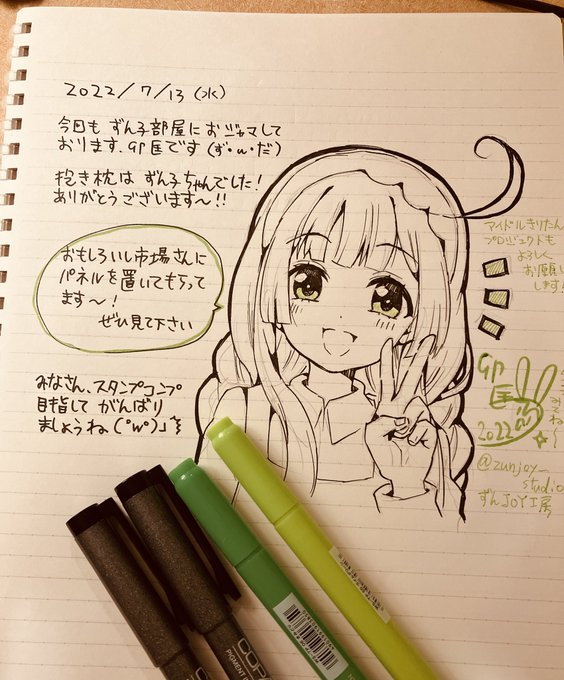 2022/7/13 (水)
今回も ずん子部屋に おジャマして
おります、GP匠です (ず・ω・だ)
抱き枕は ずん子ちゃんでした!
ありがとうございます〜!!
おもしろいし市場さんに
パネルを置いてもらって
ます〜!
ぜひ見て下さい
みなさん、スタンプコンプ
目指して がんばり
ましょうね (°w°)」
アイドルきりたん
プロジェクトも
よろしく
お願い
します!
GP
匠
2022
@zunjoy_
studio
ずんJOY工房
COPIC
PIGMENT